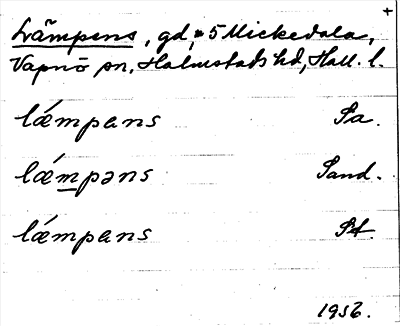 +
Lämpens, gd, 5 Mickedala,
Vapnö sn, Halmstads hd, Hall. l.
lǽmpans Pa.
lǽmpəns Sand.
lǽmpans Pt.
1956.